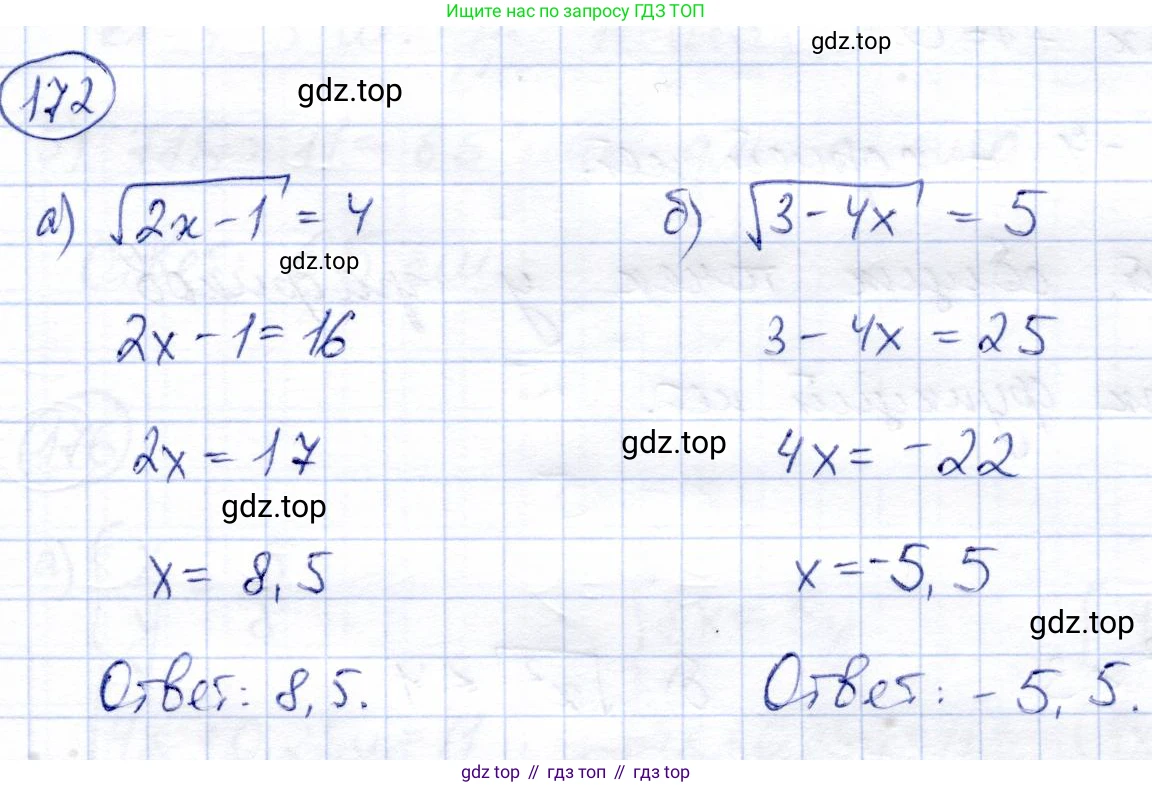 Ищите нас по запросу ГДЗ ТОП
gdz.top
172
gdz.top
а) √(2x - 1) = 4
б) √(3 - 4x) = 5
gdz.top
2x - 1 = 16
3 - 4x = 25
2x = 17
gdz.top
4x = -22
gdz.top
x = 8,5
x = -5,5
gdz.top
Ответ: 8,5.
Ответ: -5,5.
gdz top // гдз топ // gdz top